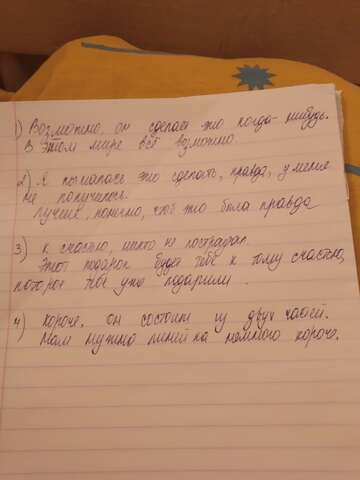 1) Возможно, он сделает это когда-нибудь.
В этом мире всё возможно.
2) Я пыталась это сделать, правда, у меня
не получилось.
Лучше, конечно, чтоб это была правда
3) К счастью, никто не пострадал.
Этот подарок будет тебе к тому счастью,
которое тебе уже подарили.
4) Короче, он состоит из двух частей.
Нам нужна линейка немного короче.